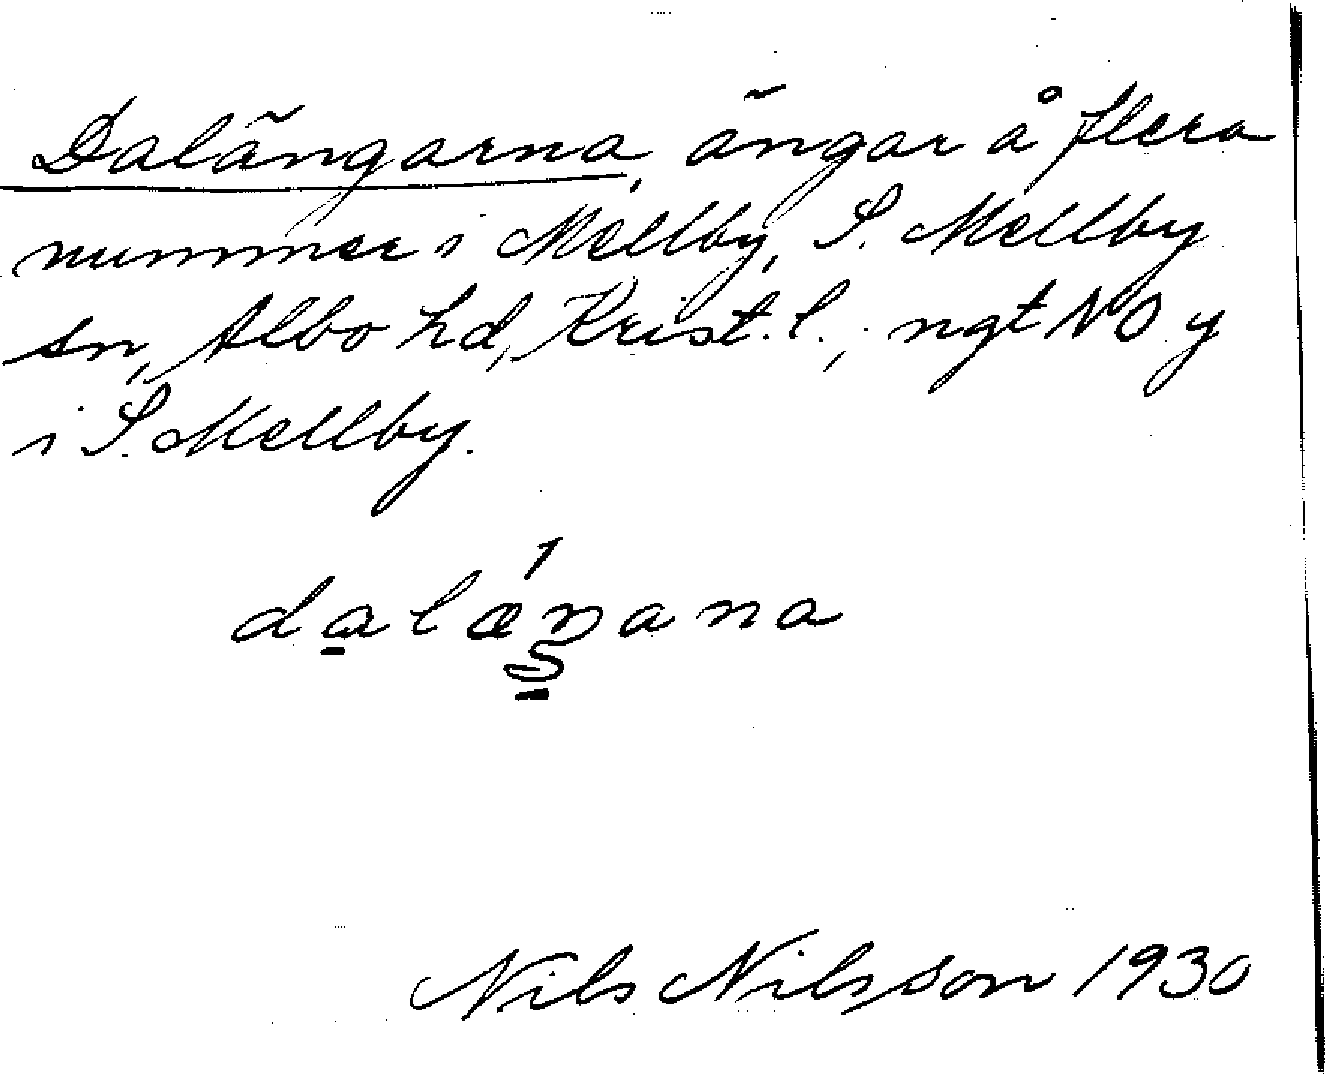 Dalängarna, ängar å flera
nummer i Mellby, S. Mellby
sn, Albo hd, Krist. l., ngt NO y
i S. Mellby.
dalæŋana
Nils Nilsson 1930